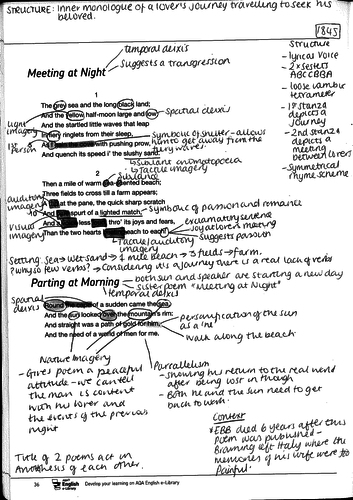 STRUCTURE: Inner monologue of a lover's journey travelling to seek his
beloved.
1845
Temporal deixis
Suggests a transgression
Meeting at Night
1
The grey sea and the long black land;
And the yellow half-moon large and low
Spatial deixis
And the startled little waves that leap
In fiery ringlets from their sleep,
As I the cove with pushing prow,
And quench its speed i' the slushy sand.
Light
imagery
1st
Person
Symbolic of shelter - allows
him to get away from the
fiery waves.
Sibilant onomatopoeia
Tactile imagery
2
Sibilance
Then a mile of warm sea-scented beach;
Three fields to cross till a farm appears;
at the pane, the quick sharp scratch
And spurt of a lighted match,
And a less thro' its joys and fears,
Than the two hearts beach to each!
auditory
imagery
Visual
imagery
Symbolic of passion and romance
exclamatory sentence
joy at lovers meeting
suggests passion
Tactile/auditory
imagery
Structure
- lyrical voice
- 2 x sestets
ABCCBGA
- loose iambic
tetrameter
- 1st stanza
depicts a
journey
- 2nd stanza
depicts a
meeting
between lovers
- Symmetrical
rhyme scheme
Setting: Sea → wet sand → 1 mile beach → 3 fields → farm.
? Why so few verbs? → Considering it's a journey there is a real lack of verbs
Parting at Morning
both sun and speaker are starting a new day
sister poem "Meeting at Night"
temporal deixis
Spatial
deixis
Round the cape of a sudden came the sea,
And the sun looked over the mountain's rim:
And straight was a path of gold for him,
And the need of a world of men for me.
personification of the sun
as a 'he'
walk along the beach
Nature Imagery
- Gives poem a peaceful
attitude - we can tell
the man is content
with his lover and
the events of the previous
night
Parallelism
- showing his return to the real world
after being lost in though
- Both he and the sun need to get
back to work.
Context
* EBB died 6 years after this
poem was published -
Browning left Italy where the
memories of his wife were too
painful.
Title of 2 poems act in
Antithesis of each other.
36
English
e-Library
Develop your learning on AQA English e-Library